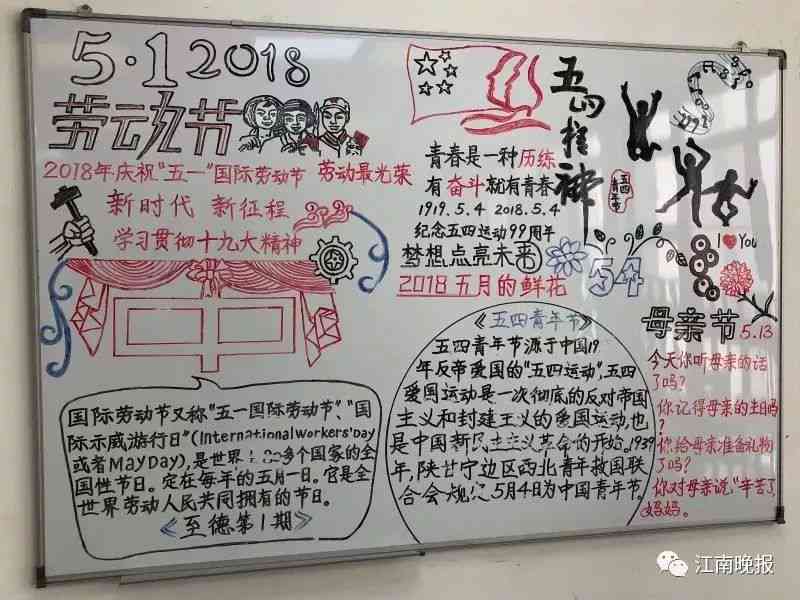 5·1 2018
劳动节
2018年庆祝"五一"国际劳动节 劳动最光荣
新时代 新征程
学习贯彻十九大精神
国际劳动节又称"五一国际劳动节"、"国
际示威游行日"(International Workers'Day
或者May Day),是世界上80多个国家的全
国性节日。定在每年的五月一日。它是全
世界劳动人民共同拥有的节日。
《至德第1期》
五四精神
五四
青年节
青春是一种历练
有奋斗就有青春
1919.5.4 2018.5.4
纪念五四运动99周年
梦想点亮未来
2018五月的鲜花
54
I ❤ You
《五四青年节》
五四青年节源于中国19
年反帝爱国的"五四运动",五四
爱国运动是一次彻底的反对帝国
主义和封建主义的爱国运动,也
是中国新民主主义革命的开始。1939
年,陕甘宁边区西北青年救国联
合会规定5月4日为中国青年节。
母亲节 5.13
今天你听母亲的话
了吗?
你记得母亲的生日吗
?
你给母亲准备礼物
了吗?
你对母亲说"辛苦了,
妈妈。
江南晚报